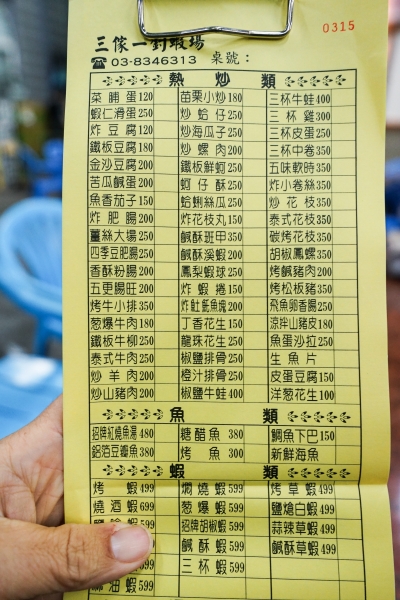 0315
三傢一釣蝦場
☎03-8346313 桌號:
熱炒類
菜脯蛋120 苗栗小炒180 三杯牛蛙400
蝦仁滑蛋250 炒蛤仔250 三杯雞300
炸豆腐120 炒海瓜子250 三杯皮蛋250
鐵板豆腐180 炒螺肉200 三杯中卷350
金沙豆腐200 鐵板鮮蚵250 五味軟時350
苦瓜鹹蛋200 蚵仔酥250 炸小卷絲350
魚香茄子150 蛤蜊絲瓜250 炒花枝350
炸肥腸200 炸花枝丸150 泰式花枝350
薑絲大腸250 鹹酥班甲350 碳烤花枝350
四季豆肥腸250 鹹酥溪蝦200 胡椒鳳螺350
香酥粉腸200 鳳梨蝦球250 烤鹹豬肉200
五更腸旺200 炸蝦捲150 烤松板豬350
烤牛小排350 炸魠魚塊200 飛魚卵香腸250
蔥爆牛肉180 丁香花生150 涼拌山豬皮180
鐵板牛柳250 龍珠花生250 魚蛋沙拉250
泰式牛肉250 椒鹽排骨250 生魚片
炒羊肉200 橙汁排骨250 皮蛋豆腐150
炒山豬肉200 椒鹽牛蛙400 洋葱花生100
魚類
招牌紅燒魚湯480 糖醋魚380 鯛魚下巴150
鋁箔豆瓣魚380 烤魚300 新鮮海魚
蝦類
烤蝦499 燜燒蝦599 烤草蝦499
燒酒蝦699 葱爆蝦599 鹽熗白蝦499
599 招牌胡椒蝦599 蒜辣草蝦499
鹹酥蝦599 鹹酥草蝦499
三杯蝦599
麻油蝦599